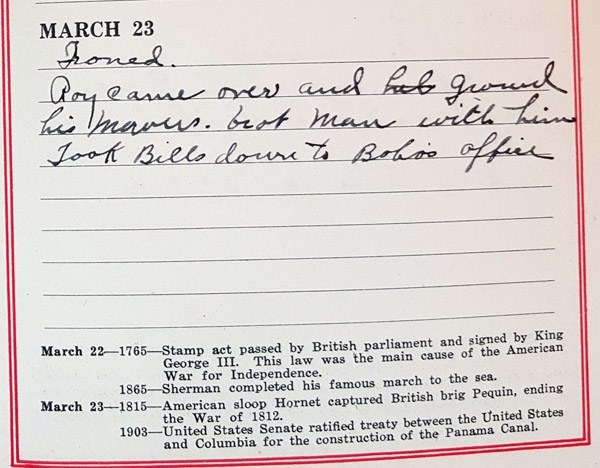 MARCH 23
Ironed.
Roy came over and hel ground
his mowers. brot man with him
Took Bills down to Bob's office
March 22—1765—Stamp act passed by British parliament and signed by King
George III. This law was the main cause of the American
War for Independence.
1865—Sherman completed his famous march to the sea.
March 23—1815—American sloop Hornet captured British brig Pequin, ending
the War of 1812.
1903—United States Senate ratified treaty between the United States
and Columbia for the construction of the Panama Canal.